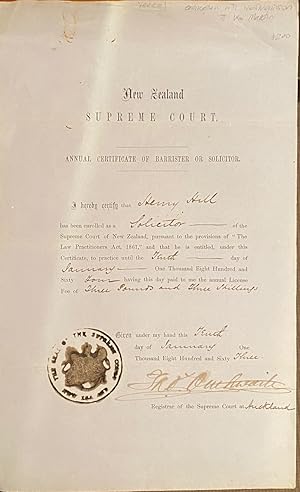 New Zealand
SUPREME COURT.
ANNUAL CERTIFICATE OF BARRISTER OR SOLICITOR.
I hereby certify that Henry Hill
has been enrolled as a Solicitor of the
Supreme Court of New Zealand, pursuant to the provisions of "The
Law Practitioners Act, 1861," and that he is entitled, under this
Certificate, to practice until the Tenth day of
January One Thousand Eight Hundred and
Sixty four having this day paid to me the annual License
Fee of Three Pounds and Three Shillings
Given under my hand this Tenth
day of January One
Thousand Eight Hundred and Sixty Three.
Registrar of the Supreme Court at Auckland